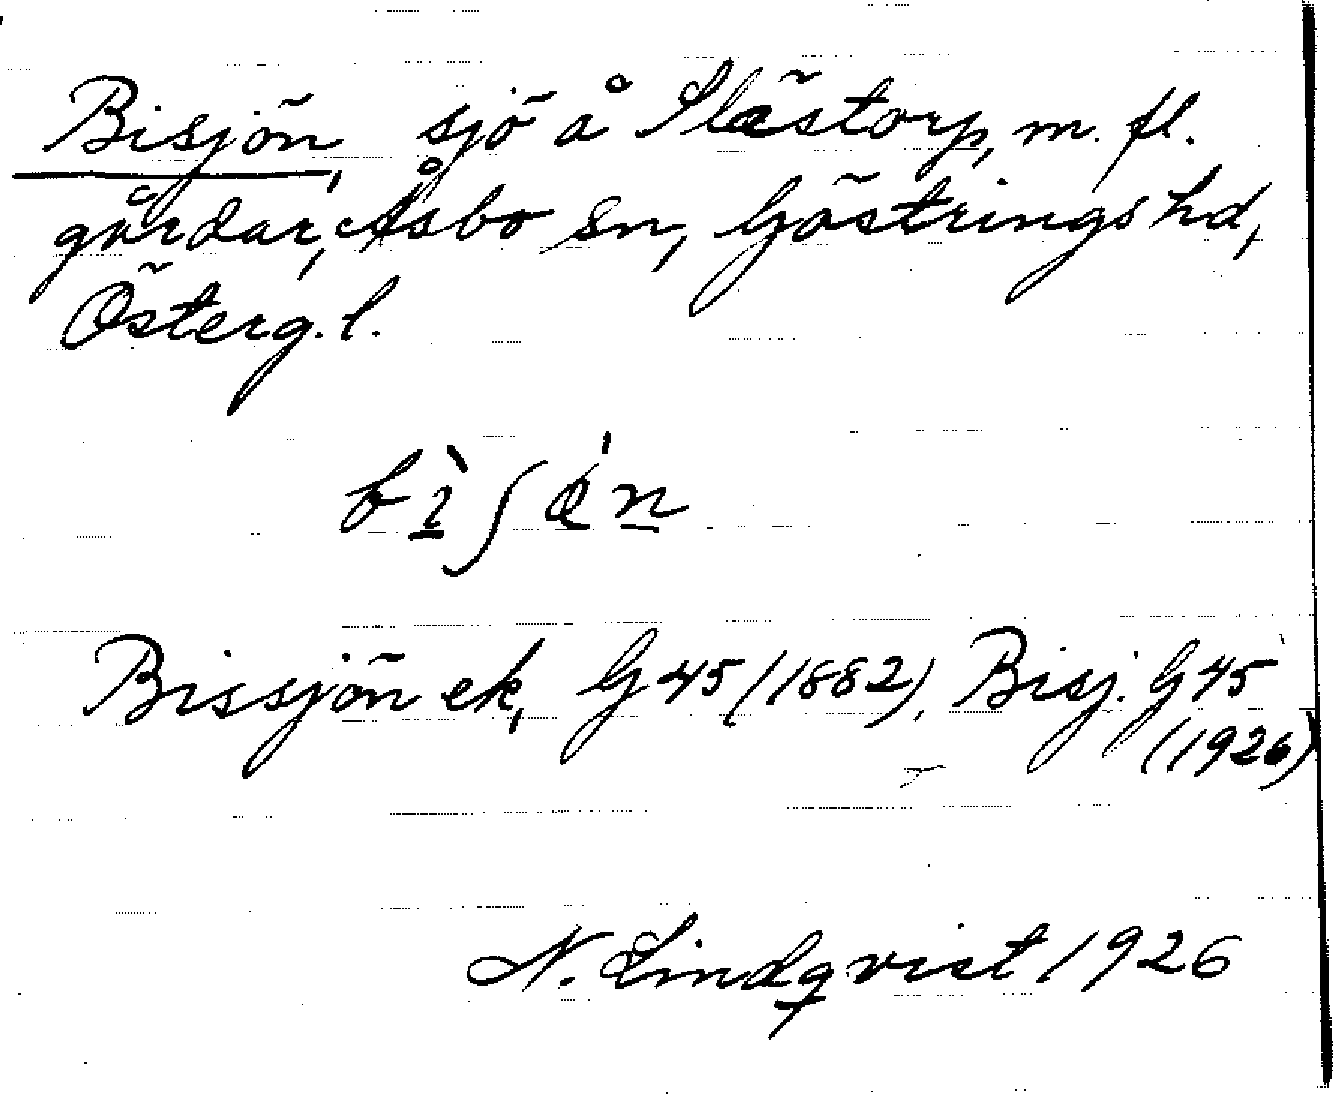 Bisjön, sjö å Slästorp, m. fl.
gårdar, Åsbo sn, Göstrings hd,
Österg. l.
Bissjön ek, G 45 (1882), Bisj. G 45
(1926)
N. Lindqvist 1926